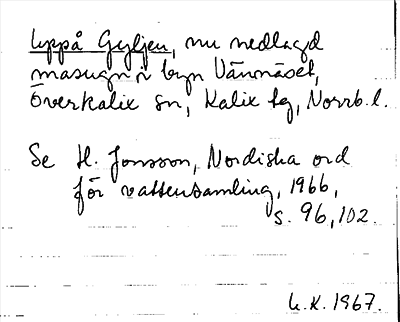 uppå Gyljen, nu nedlagd
masugn i byn Vännäset,
Överkalix sn, Kalix tg, Norrb. l.
Se H. Jonsson, Nordiska ord
för vattensamling, 1966,
s. 96, 102.
U.K. 1967.